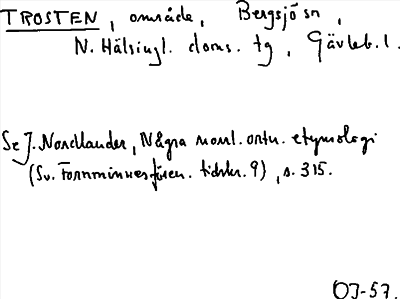 TROSTEN, område, Bergsjö sn,
N. Hälsingl. doms. tg, Gävleb. l.
Se J. Nordlander, Några norrl. ortn. etymologi
(Sv. Fornminnesfören. tidskr. 9), s. 315.
OJ-57.